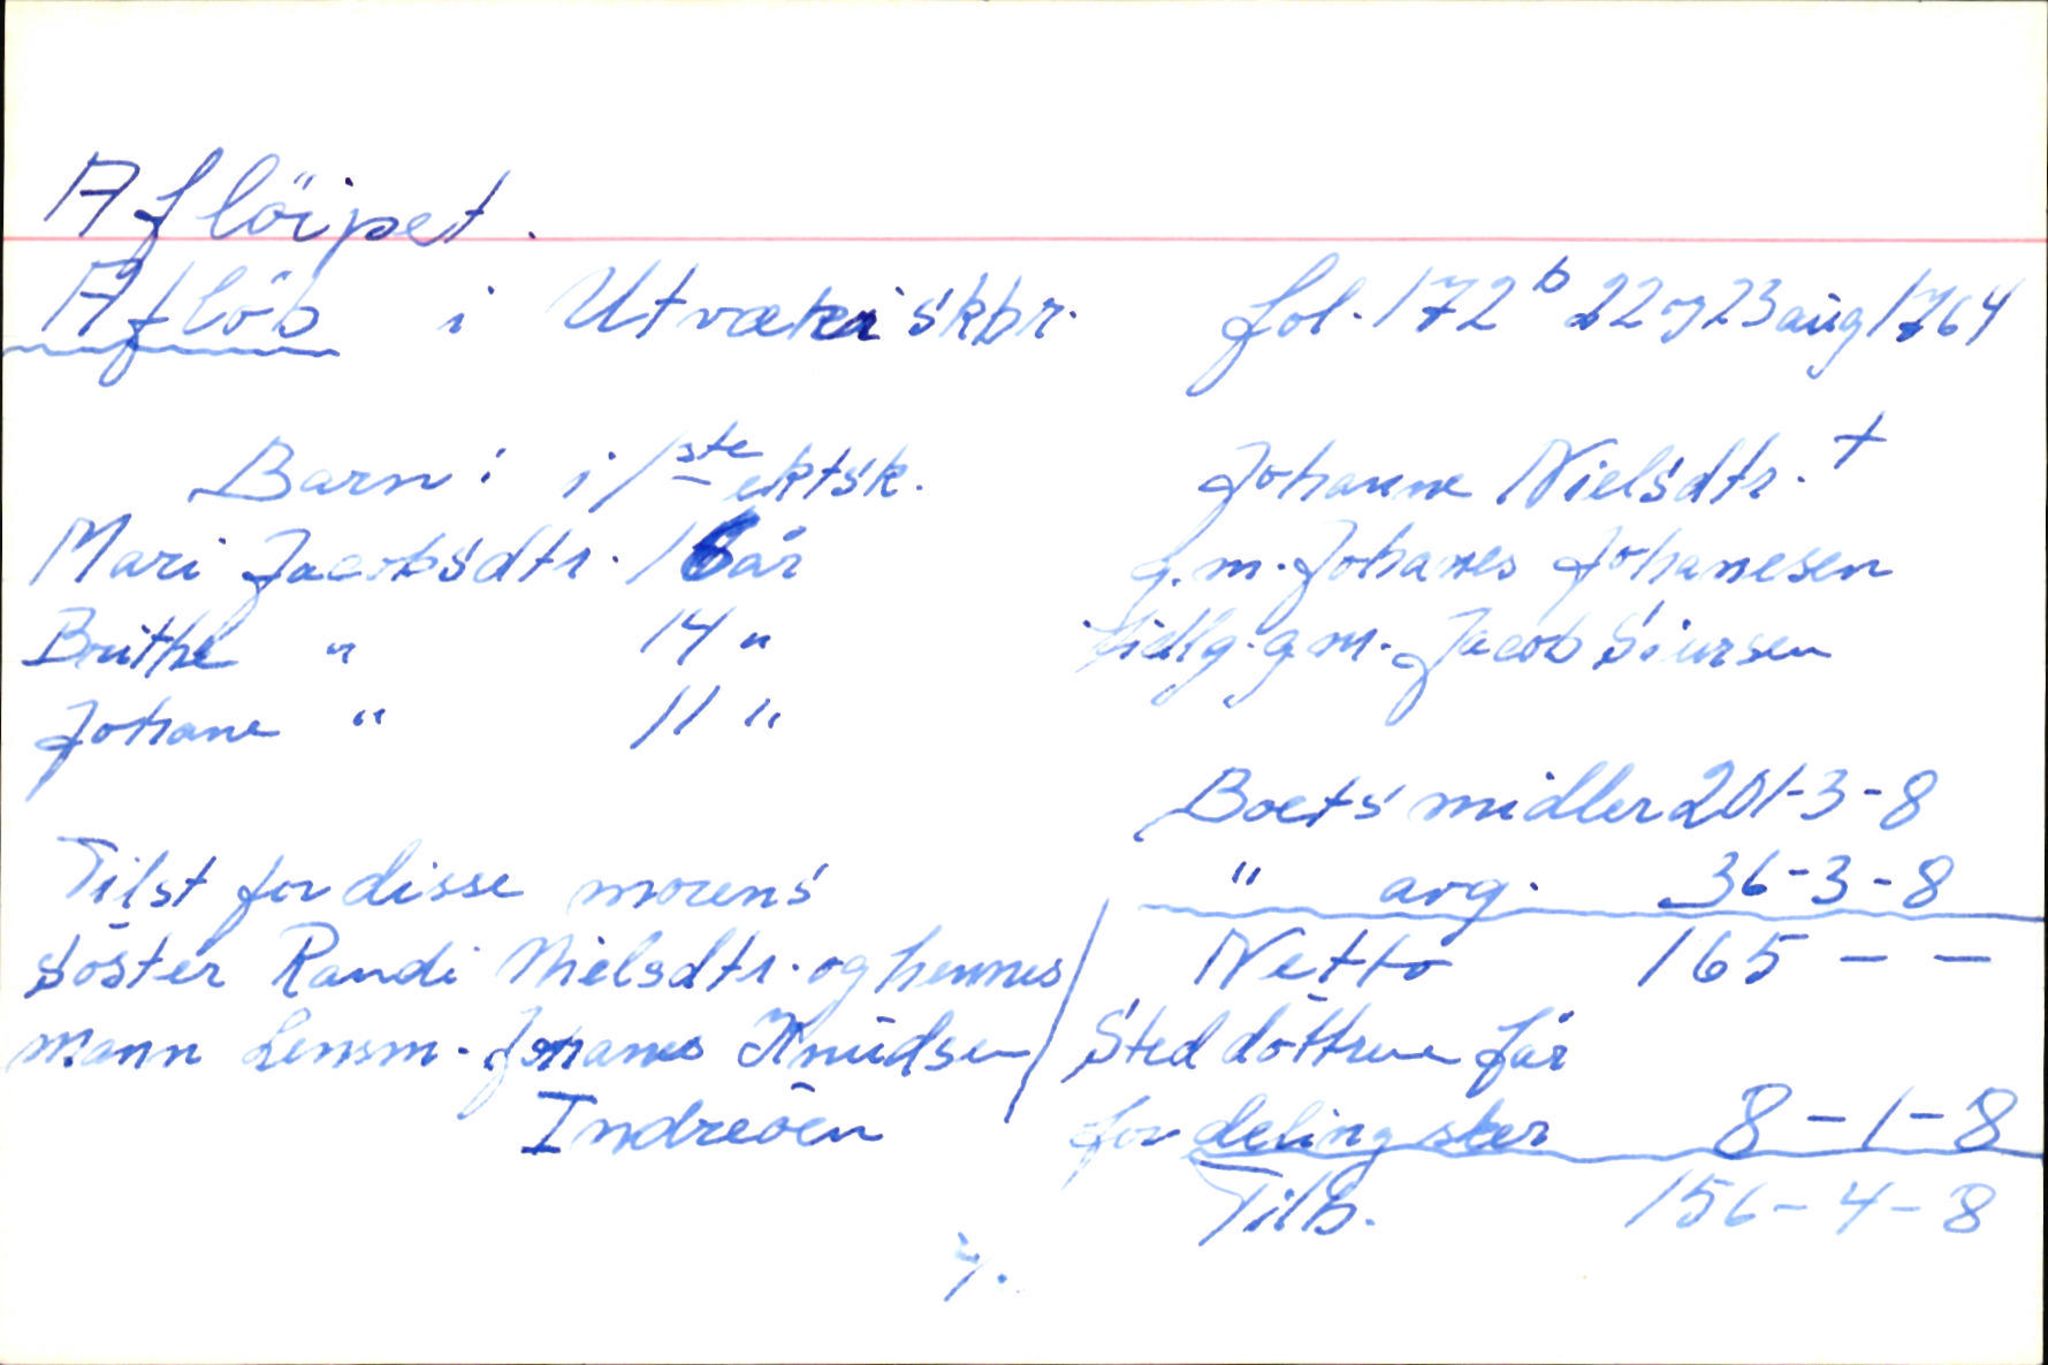 Aflöipet.
Aflöb i Utvær skbr. fol. 172 b 22 og 23 aug 1764
Barn: i 1ste ektsk.
Mari Jacobsdtr. 16 år
Brithe " 14 "
Johane " 11 "
Tilst for disse morens
söster Randi Nielsdtr. og hennes
mann Lensm. Johanes Knudsen
Indreöen
Johanne Nielsdtr. +
g.m. Johanes Johanesen
tidlg. g m. Jacob Siursen
Boets midler 201-3-8
" avg. 36-3-8
Netto 165 - -
Sted döttrene får
for delingster 8-1-8
Tilb. 156-4-8